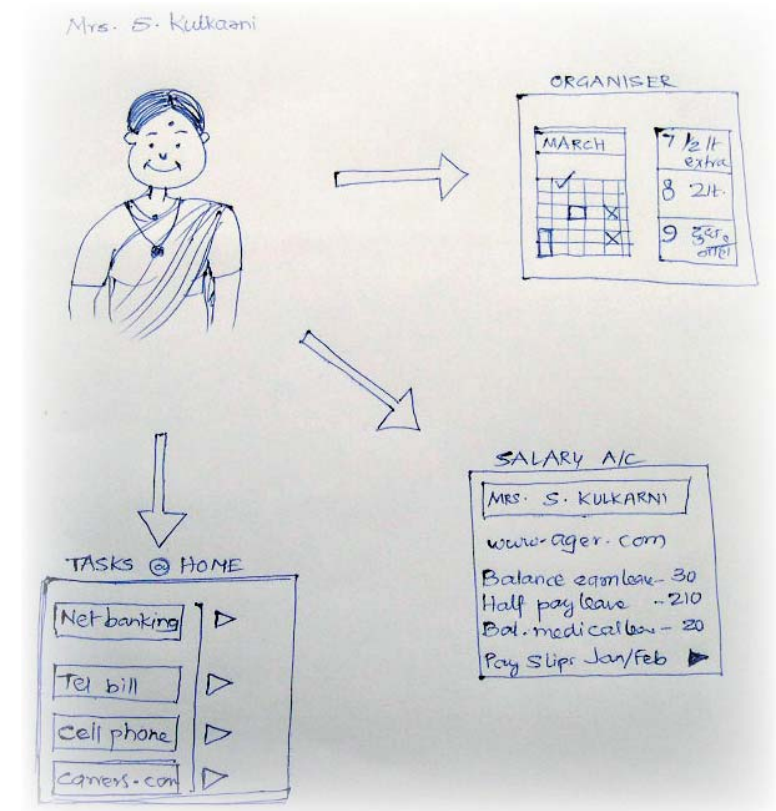 Mrs. S. Kulkarni
ORGANISER
MARCH
7 1/2 lt
extra
8 2lt.
9 दुध
नाही
SALARY A/C
MRS. S. KULKARNI
www.ager.com
Balance earn leave - 30
Half pay leave - 210
Bal. medical leav - 20
Pay Slips Jan/Feb
TASKS @ HOME
Net banking
Tel bill
Cell phone